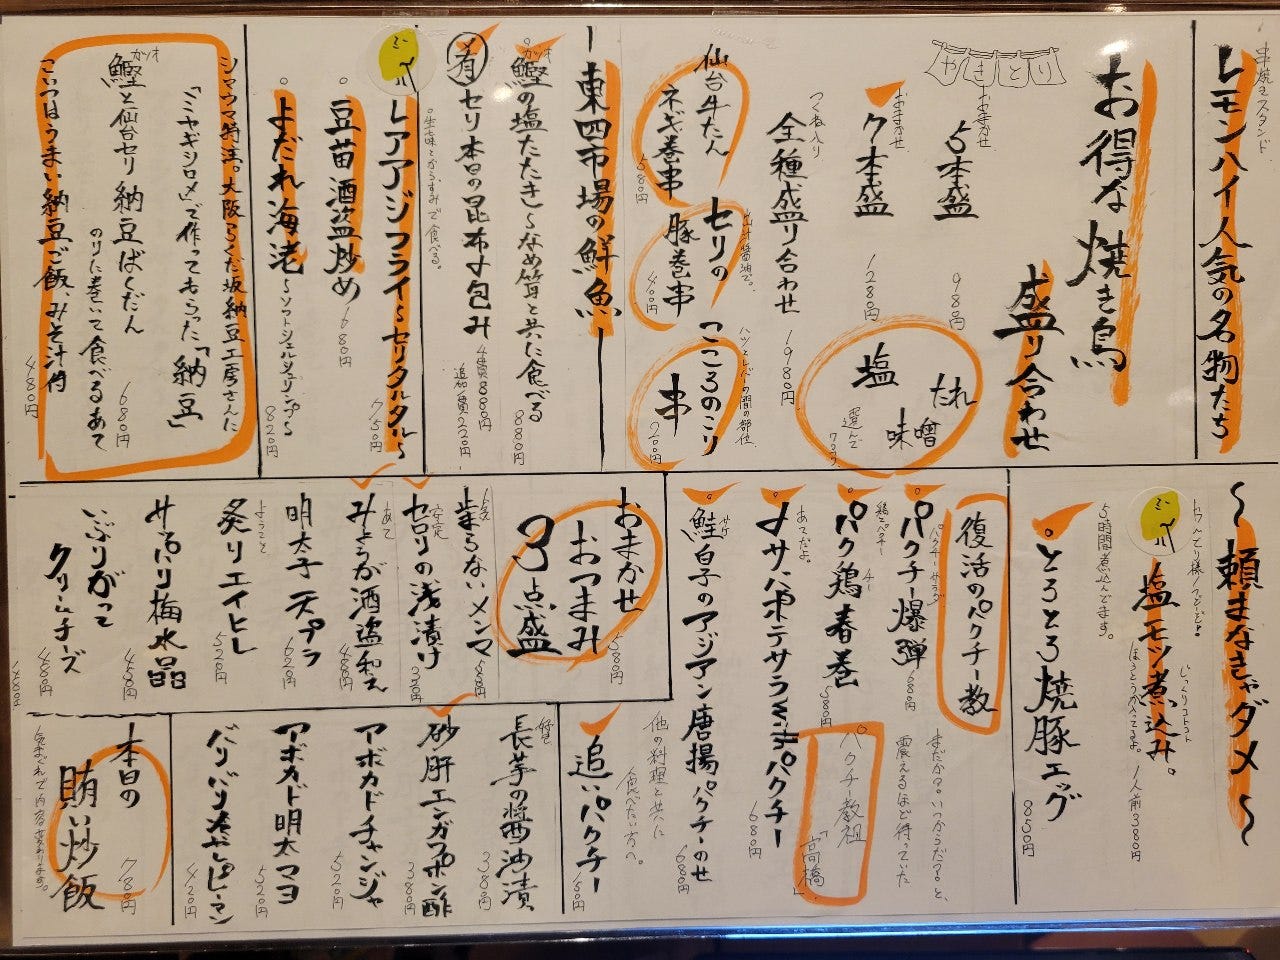 串焼きスタンド
レモンハイ人気の名物たち
お得な焼き鳥
盛り合わせ
やきとり
おまかせ
5本盛
980円
おまかせ
7本盛
1280円
つくね入り
全種盛り合わせ
1980円
塩
たれ
味噌
選んで
仙台牛たん
ネギ巻串
580円
セリの
豚巻串
400円
ハツとレバーの間の部位
こころのこり
串
200円
東四市場の鮮魚
カツオ
鰹の塩たたき〜なめ茸と共に食べる
880円
セリ本日の昆布〆包み
4貫880円
追加1貫220円
レアアジフライ〜セリタルタル〜
750円
豆苗酒盗炒め
680円
よだれ海老〜ソフトシェルシュリンプ〜
820円
シマウマ特注。大阪らくだ坂納豆工房さんに
「ミヤギシロメ」で作ってもらった「納豆」
カツオ
鰹と仙台セリ納豆ばくだん
のりに巻いて食べるあて
680円
こいつはうまい納豆ご飯、みそ汁付
480円
〜頼まなきゃダメ〜
じっくりコトコト
塩モツ煮込み。
1人前380円
5時間煮込んでます。
とろとろ焼豚エッグ
850円
復活のパクチー教
まだか?いつからだ?と、
震えるほど待っていた
パクチー教祖
「高橋」
パクチーサラダ
パクチー爆弾
680円
鶏とパクチー
パク鶏春巻
580円
あてだよ。
〆サバポテサラwithパクチー
680円
サケ
鮭白子のアジアン唐揚パクチーのせ
680円
他の料理と共に
食べたい方へ。
追いパクチー
おまかせ
おつまみ
3点盛
580円
人気
止まらないメンマ
安定
セロリの浅漬け
あて
みょうが酒盗和え
480円
明太子天プラ
620円
ようこそ
炙りエイヒレ
520円
サッパリ梅水晶
480円
いぶりがっこ
クリームチーズ
480円
好きです
長芋の醤油漬
380円
砂肝エンガワポン酢
380円
アボカドチャンジャ
520円
アボカド明太マヨ
520円
バリバリ冷やしピーマン
420円
本日の
賄い炒飯
780円